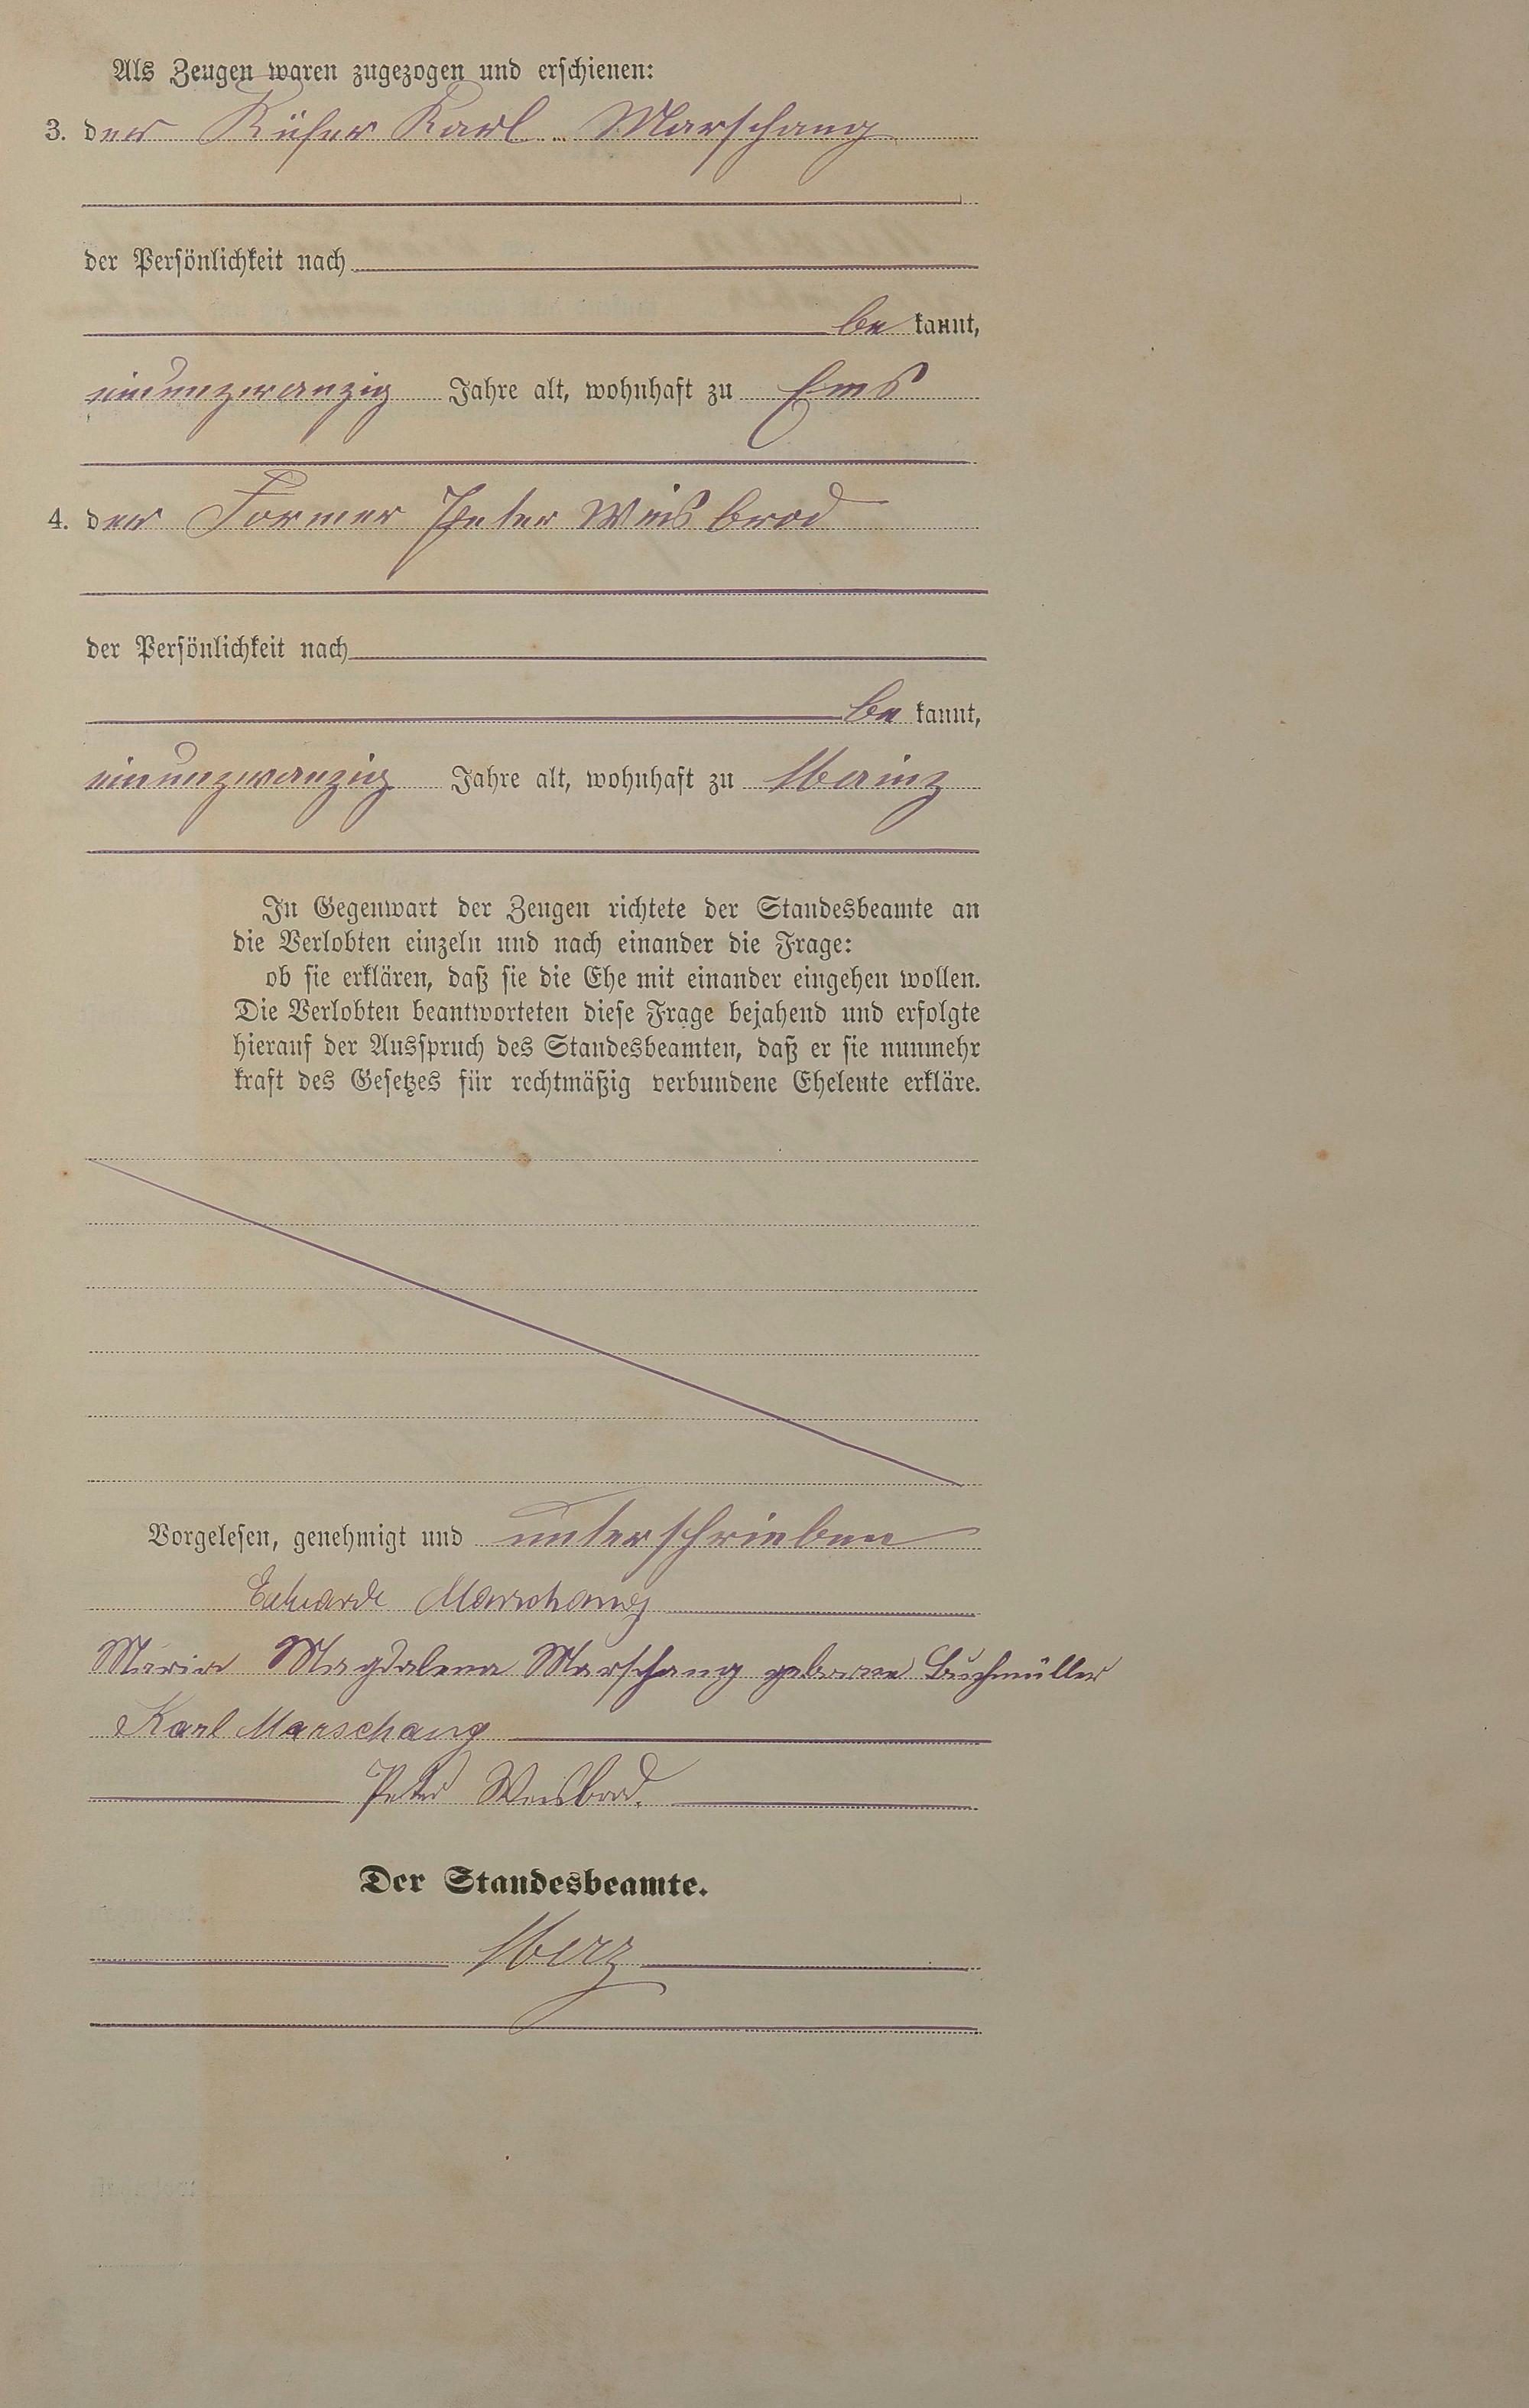 Als Zeugen waren zugezogen und erschienen:
3. der Küfer Karl Marschang
der Persönlichkeit nach
be kannt,
einunzwanzig Jahre alt, wohnhaft zu Ems
4. der Former Peter Weisbrod
der Persönlichkeit nach
be kannt,
einunzwanzig Jahre alt, wohnhaft zu Mainz
In Gegenwart der Zeugen richtete der Standesbeamte an
die Verlobten einzeln und nach einander die Frage:
ob sie erklären, daß sie die Ehe mit einander eingehen wollen.
Die Verlobten beantworteten diese Frage bejahend und erfolgte
hierauf der Ausspruch des Standesbeamten, daß er sie nunmehr
kraft des Gesetzes für rechtmäßig verbundene Eheleute erkläre.
Vorgelesen, genehmigt und unterschrieben
Marschang
Maria Magdalena Marschang geborene Buchmüller
Karl Marschang
Peter Weisbrod.
Der Standesbeamte.
Merz